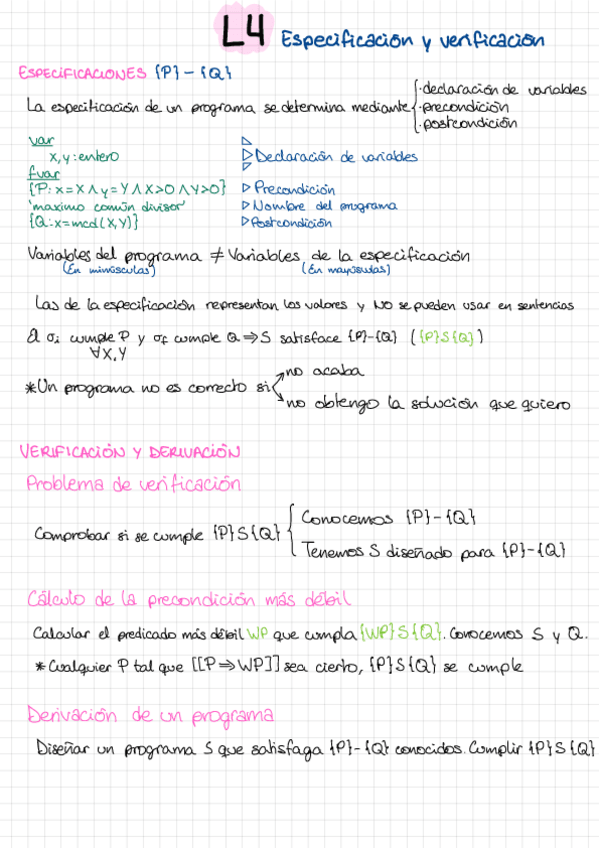 L4 Especificación y verificación
ESPECIFICACIONES {P} - {Q}
La especificación de un programa se determina mediante
· declaración de variables
· precondición
· postcondición
var
x, y : entero
▷ Declaración de variables
fvar
{P: x=X ∧ y=Y ∧ X>0 ∧ Y>0} ▷ Precondición
'maximo común divisor' ▷ Nombre del programa
{Q: x=mcd(X,Y)} ▷ Postcondición
Variables del programa ≠ Variables de la especificación
(En minúsculas) (En mayúsculas)
Las de la especificación representan los valores y NO se pueden usar en sentencias
σi cumple P y σf cumple Q ⇒ S satisface {P}-{Q} ({P}S{Q})
∀X,Y
*Un programa no es correcto si
no acaba
no obtengo la solución que quiero
VERIFICACIÓN Y DERIVACIÓN
Problema de verificación
Comprobar si se cumple {P}S{Q}
Conocemos {P}-{Q}
Tenemos S diseñado para {P}-{Q}
Cálculo de la precondición más débil
Calcular el predicado más débil WP que cumpla {WP}S{Q}. Conocemos S y Q.
* Cualquier P tal que [[P ⇒ WP]] sea cierto, {P}S{Q} se cumple
Derivación de un programa
Diseñar un programa S que satisfaga {P}-{Q} conocidos. Cumplir {P}S{Q}